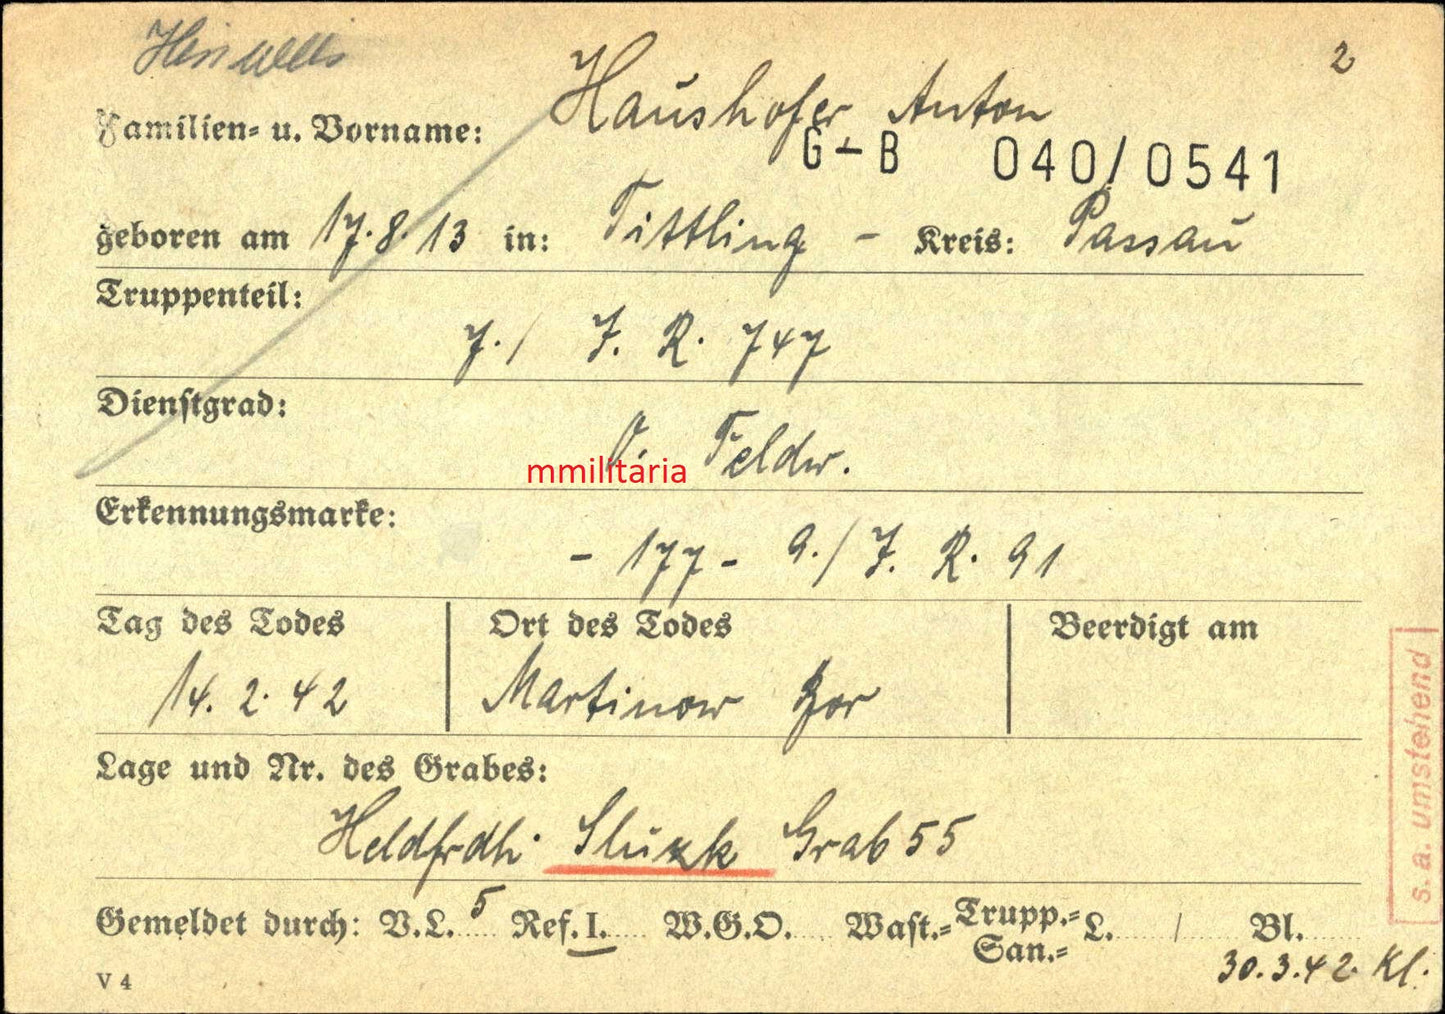 2
Familien- u. Vorname: Haushofer Anton
G-B 040/0541
geboren am 17.8.13 in: Tittling - Kreis: Passau
Truppenteil:
7./ J. R. 747
Dienstgrad:
O. Feldw.
mmilitaria
Erkennungsmarke:
- 177 - 9./J. R. 91
Tag des Todes Ort des Todes Beerdigt am
14. 2. 42 Martinow
Lage und Nr. des Grabes:
Heldfrdh. Sluzk Grab 55
Gemeldet durch: V.L. 5 Ref. I. W.G.O. Wast.= Trupp.= San.= L. / Bl.
30.3.42 Kl.
V 4
s. a. umstehend